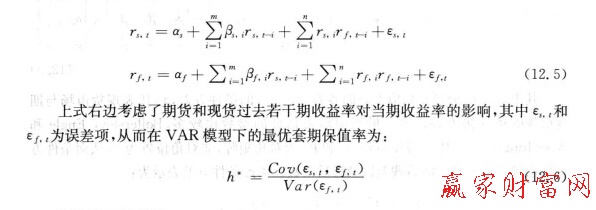 r_{s,t} = α_s + \sum_{i=1}^{m} β_{s,i} r_{s,t-i} + \sum_{i=1}^{n} r_{s,i} r_{f,t-i} + ε_{s,t}
r_{f,t} = α_f + \sum_{i=1}^{m} β_{f,i} r_{s,t-i} + \sum_{i=1}^{n} r_{f,i} r_{f,t-i} + ε_{f,t} (12.5)
上式右边考虑了期货和现货过去若干期收益率对当期收益率的影响,其中 ε_{s,t} 和
ε_{f,t} 为误差项,从而在 VAR 模型下的最优套期保值率为:
h* = \frac{Cov(ε_{s,t}, ε_{f,t})}{Var(ε_{f,t})} (12.6)
赢家财富网